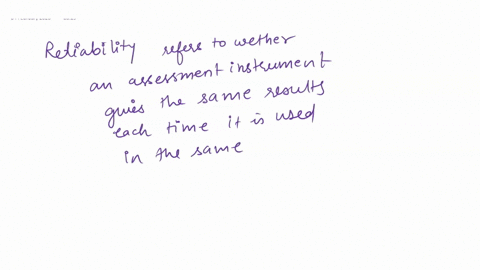 Reliability refers to wether
an assessment instrument
gives the same results
each time it is used
in the same